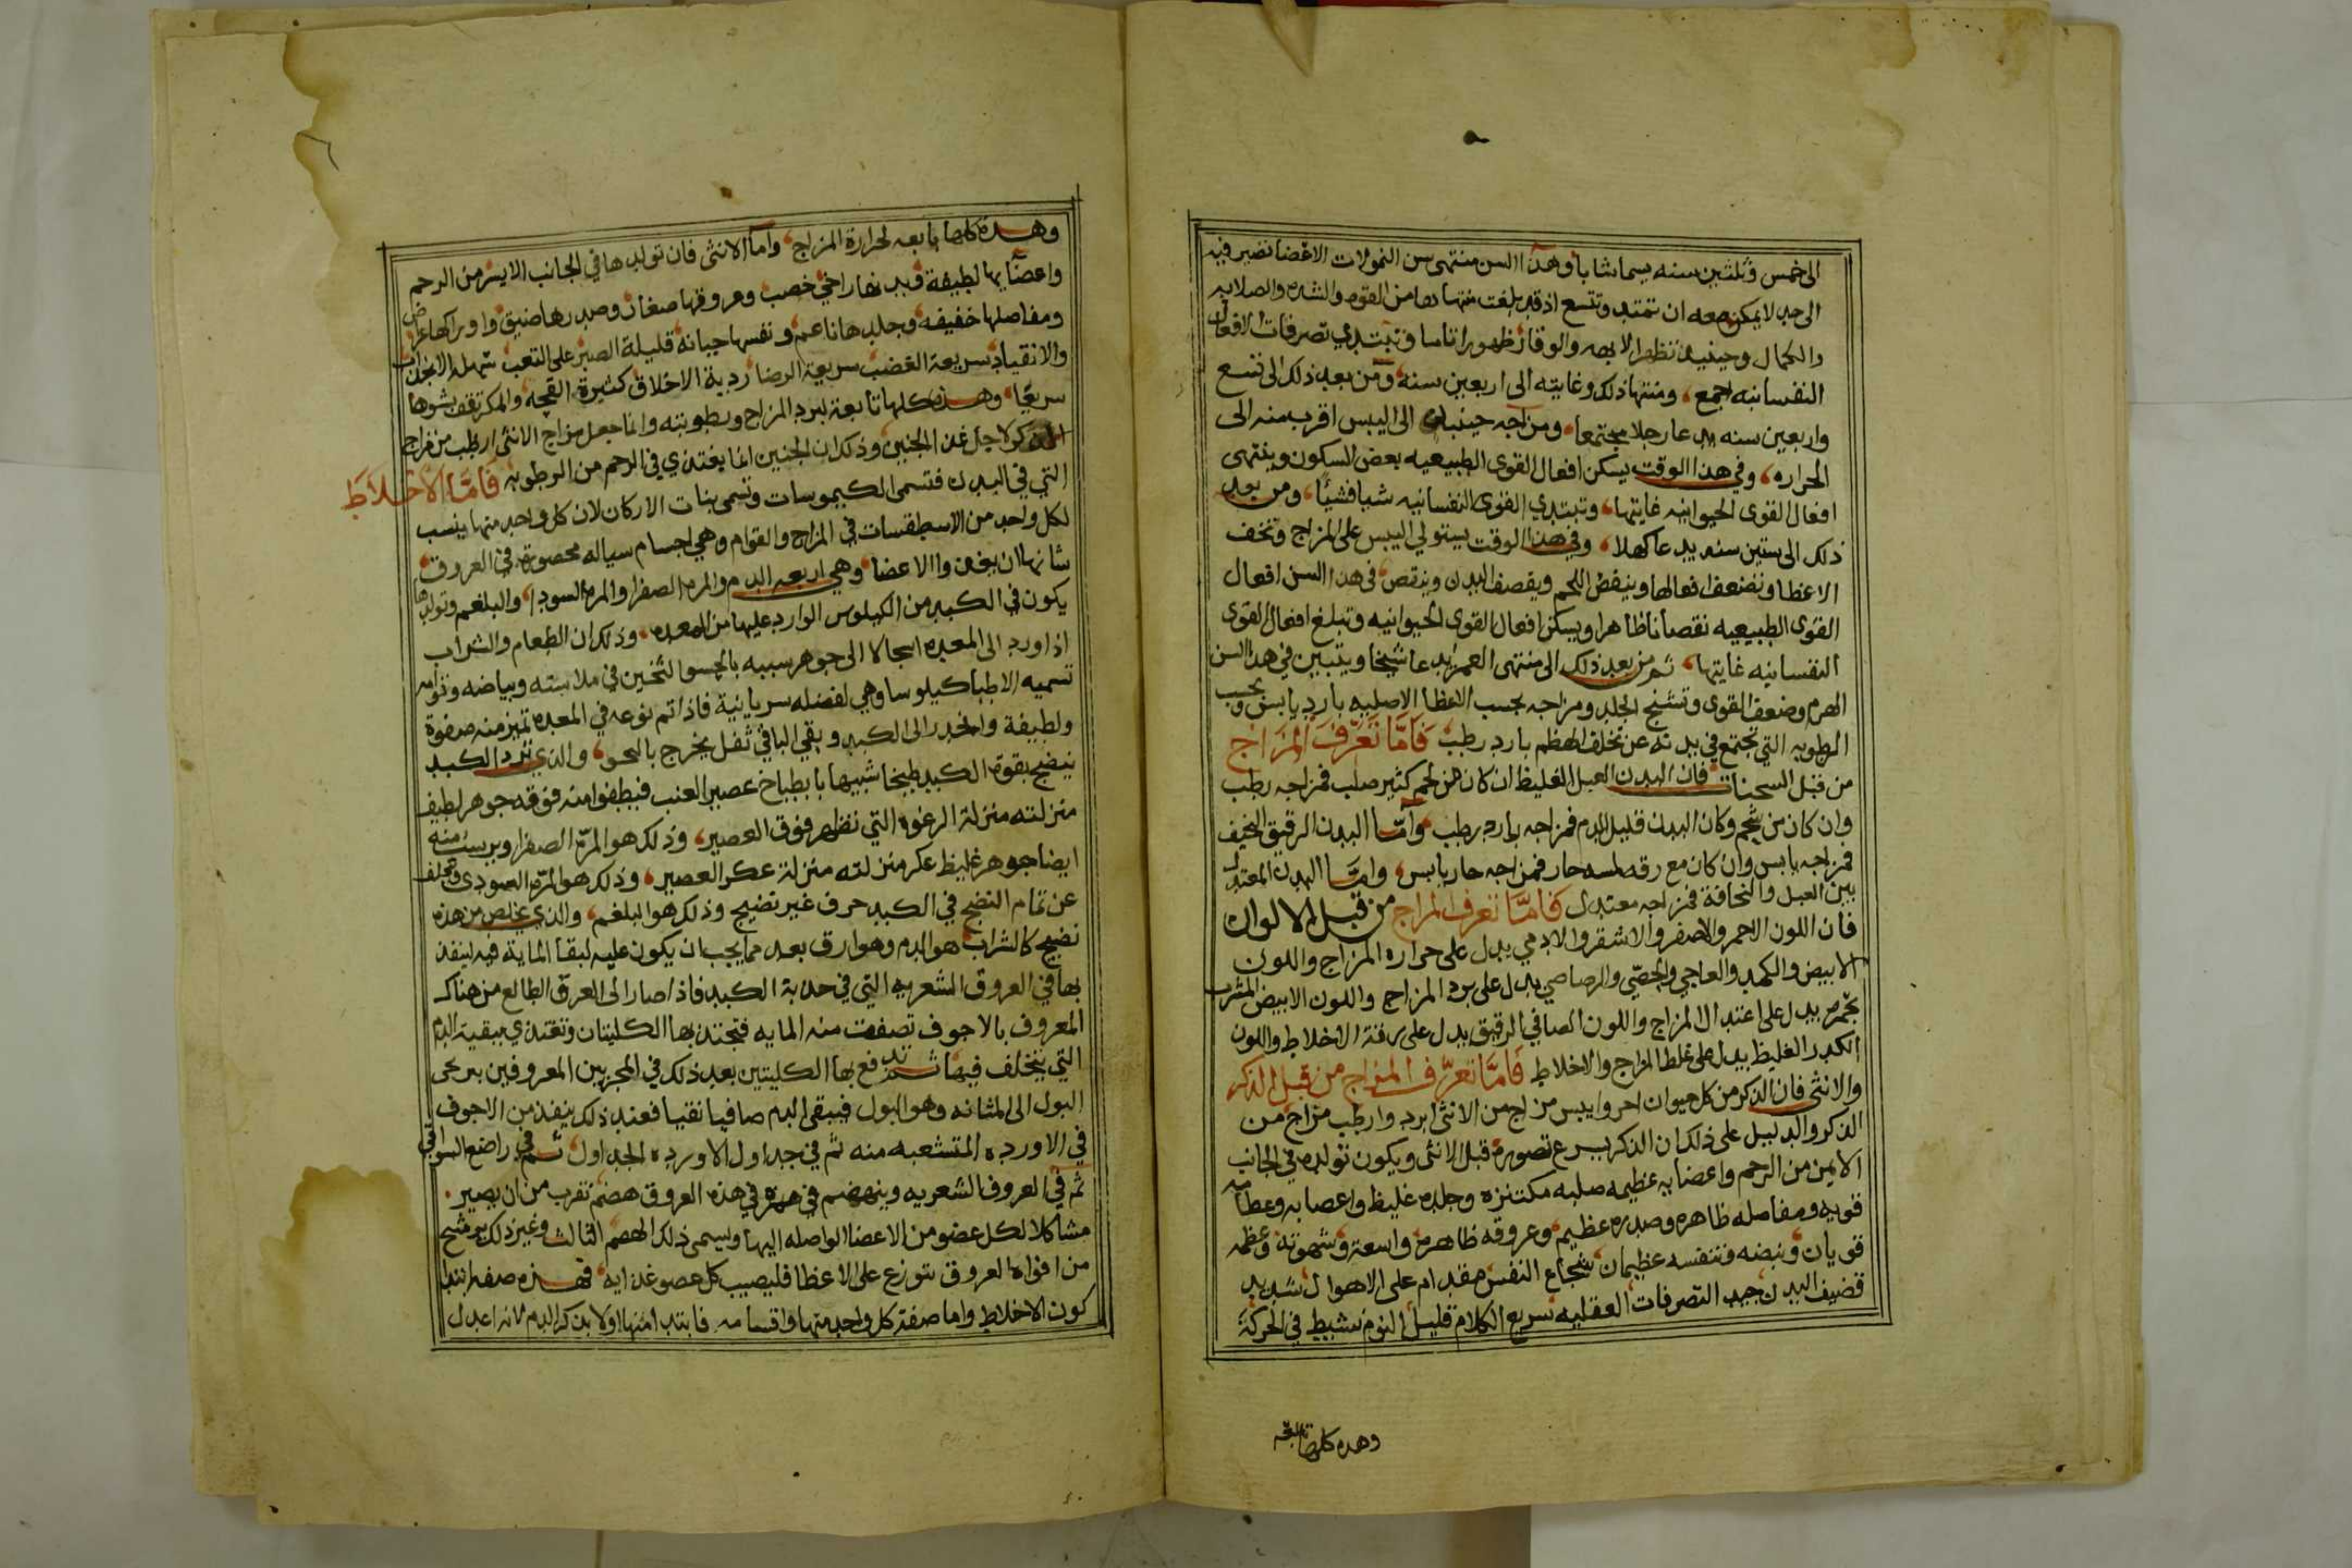 الى خمس وثلثين سنه يسما شابا وهذا السن منتهى سن النمو لات الاعضا تصير فيه
الى حد لا يمكن معه ان تمتد وتتسع اذ قد بلغت منتهاها من القوه والشده والصلابه
والكمال وحينيد تظهر الابهه والوقار ظهورا تاما وتبتدي تصرفات الافعال
النفسانيه اجمع ومنتها ذلك وغايته الى اربعين سنه ومن بعد ذلك الى تسع
واربعين سنه يدعا رجلا مجتمعا ومزاجه حينيد الى اليبس اقرب منه الى
الحراره وفي هذا الوقت يسكن افعال القوى الطبيعيه بعض السكون وينتهى
افعال القوى الحيوانيه غايتها وتبتدي القوى النفسانيه شيا فشيًا ومن بعد
ذلك الى ستين سنه يدعا كهلا وفي هذا الوقت يستولي اليبس على المزاج وتخف
الاعظا وتضعف افعالها وينقص اللحم ويقصف البدن وينقص في هذا السن افعال
القوى الطبيعيه نقصانا ظاهرا ويسكن افعال القوى الحيوانيه وتبلغ افعال القوى
النفسانيه غايتها ثم من بعد ذلك الى منتهى العمر يدعا شيخا ويتبين في هذا السن
الهرم وضعف القوى وتشنج الجلد ومزاجه بحسب الاعظا الاصليه بارد يابس وبحسب
الرطوبه التي تجتمع في بدنه عن تخلف الهظم بارد رطب فَامَّا تَعَرّفَ المزَاج
من قبل السحنات فان البدن العبل الغليظ ان كان من لحم كثير صلب فمزاجه رطب
وان كان من شحم وكان البدن قليل الدم فمزاجه بارد رطب وامّا البدن الرقيق النحيف
فمزاجه يابس وان كان مع رقه لمسه حار فمزاجه حار يابس وامّا البدن المعتدل
بين العبل والنحافة فمزاجه معتدل فامَّا تعرف المزاج من قبل الالوان
فان اللون الاحمر والاصفر والاشقر والادمي يدل على حراره المزاج واللون
الابيض والكمد والعاجي والجصّي والرصاصي يدل على برد المزاج واللون الابيض المشرب
بحُمره يدل على اعتدال المزاج واللون الصافي الرقيق يدل على رقة الاخلاط واللون
الكدر الغليظ يدل على غلظ المزاج والاخلاط فَامَّا تعرّف المزاج من قبل الذكر
والانثى فان الذكر من كل حيوان احر وايبس مزاج من الانثى ابرد وارطب مزاج من
الذكر والدليل على ذلك ان الذكر يسرع تصوره قبل الانثى ويكون تولده في الجانب
الايمن من الرحم واعضايه عظيمه صلبه مكتنزه وجلده غليظ واعصابه وعظامه
قويه ومفاصله ظاهره وصدره عظيم وعروقه ظاهره واسعة وشهوته وعظمه
قويان ونبضه وتنفسه عظيمان شجاع النفس مقدام على الاهوال شديد
قضيف البدن جيد التصرفات العقليه سريع الكلام قليل النوم نشيط في الحركة
وهده كلها تابعه
وهذه كلها تابعه لحرارة المزاج وامّا الانثى فان تولدها في الجانب الايسر من الرحم
واعضايها لطيفة وبدنها راخي خصب وعروقها صغار وصدرها ضيق واوراكها عراض
ومفاصلها خفيفه وجلدها ناعم ونفسها جبانه قليلة الصبر على التعب سهلة الانجذاب
والانقياد سريعة الغضب سريعة الرضا ردية الاخلاق كثيرة القحه والمكر تقف نشوها
سريعًا وهذه كلها تابعة لبرد المزاج ورطوبته وانما جعل مزاج الانثى ارطب من مزاج
الذكر لاجل غذا الجنين وذلك ان الجنين انما يغتذي في الرحم من الرطوبه فَامَّا الاَخلاَطَ
التي في البدن فتسمى الكيموسات وتسمى بنات الاركان لان كل واحد منها ينسب
لكل واحد من الاسطقسات في المزاج والقوام وهي اجسام سياله محصوره في العروق
شانها ان يغدوا الاعضا وهي اربعه الدم والمره الصفرا والمره السودا والبلغم وتولدها
يكون في الكبد من الكيلوس الوارد عليها من المعده وذلك ان الطعام والشراب
اذا ورد الى المعده استحالا الى جوهر شبيه بالحسو الثخين في ملاسته وبياضه وقوامه
تسميه الاطبا كيلوسا وهي لفضله سريانية فاذا تم نوعه في المعده تميز منه صفوة
ولطيفة وانحدر الى الكبد وبقي الباقي ثفل يخرج بالنجو والذي يرد الكبد
ينضج بقوة الكبد طبخا شبيها بابطباخ عصير العنب فيطفوا منه فوقه جوهر لطيف
منزلته منزلة الرغوه التي تظهر فوق العصير وذلك هو المرة الصفرا ويرسب منه
ايضا جوهر غليظ عكر منزلته منزلة عكر العصير وذلك هو المرة السودى وتخلف
عن تمام النضج في الكبد حرف غير نضيج وذلك هو البلغم والذي يخلص من هذه
نضيج كالشراب هو الدم وهو ارق بعد مما يجب ان يكون عليه لبقا المائية فيه لينفذ
بها في العروق الشعريه التي في حدبة الكبد فاذا صار الى العرق الطالع من هناك
المعروف بالاجوف تصفت منه المايه فتجتذبها الكليتان وتغتذي ببقية الدم
التي يتخلف فيها ثم تدفع بها الكليتين بعد ذلك في المجريين المعروفين بمرحى
البول الى المثانه وهو البول فيبقى الدم صافيا نقيا فعند ذلك ينفذ من الاجوف
في الاورده المتشعبه منه ثم في جداول الاورده الجداول ثم في راضع السواقي
ثم في العروق الشعريه وينهضم في هذه العروق هضم تقرب من ان يصير
مشاكلا لكل عضو من الاعضا الواصله اليها ويسمى ذلك الهضم الثالث وغير ذلك يرشح
من افواه العروق يتوزع على الاعظا فليصيب كل عصو غذايه فهذه صفه ابتدا
كون الاخلاط واما صفة كل واحد منها واقسامه فابتدا منها اولا بذكر الدم لانه اعدل